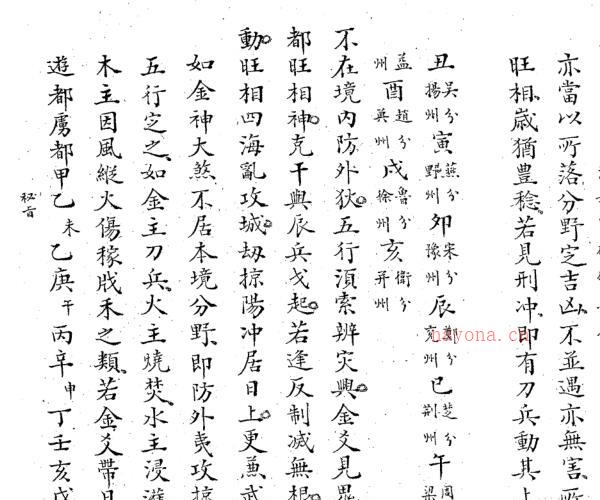 亦當以所落分野定吉凶不並遇亦無害所
旺相歲猶豊稔若見刑冲即有刀兵動其上
丑吳分揚州寅燕分野州卯宋分豫州辰鄭分兗州巳芝分荆州午周梁
益州酉趙分冀州戌魯分徐州亥衛分并州
不在境内防外狄五行湏索辨灾興金爻見鬼
都旺相神克干與辰兵戈起若逢反制减無根
動旺相四海亂攻城刼掠陽冲居日上更兼武
如金神大煞不居本境分野即防外夷攻掠
五行定之如金主刀兵火主燒焚水主浸
木主因風縱火傷稼戕禾之類若金爻帶日
遊都虜都甲乙未乙庚午丙辛申丁壬亥戊
秘旨
nayona.cn